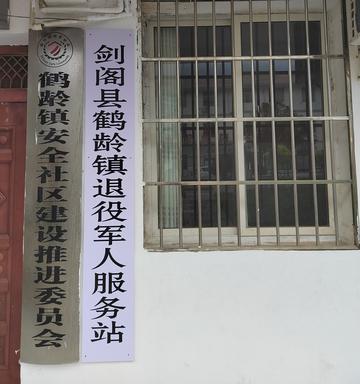 鹤龄镇安全社区建设推进委员会
剑阁县鹤龄镇退役军人服务站